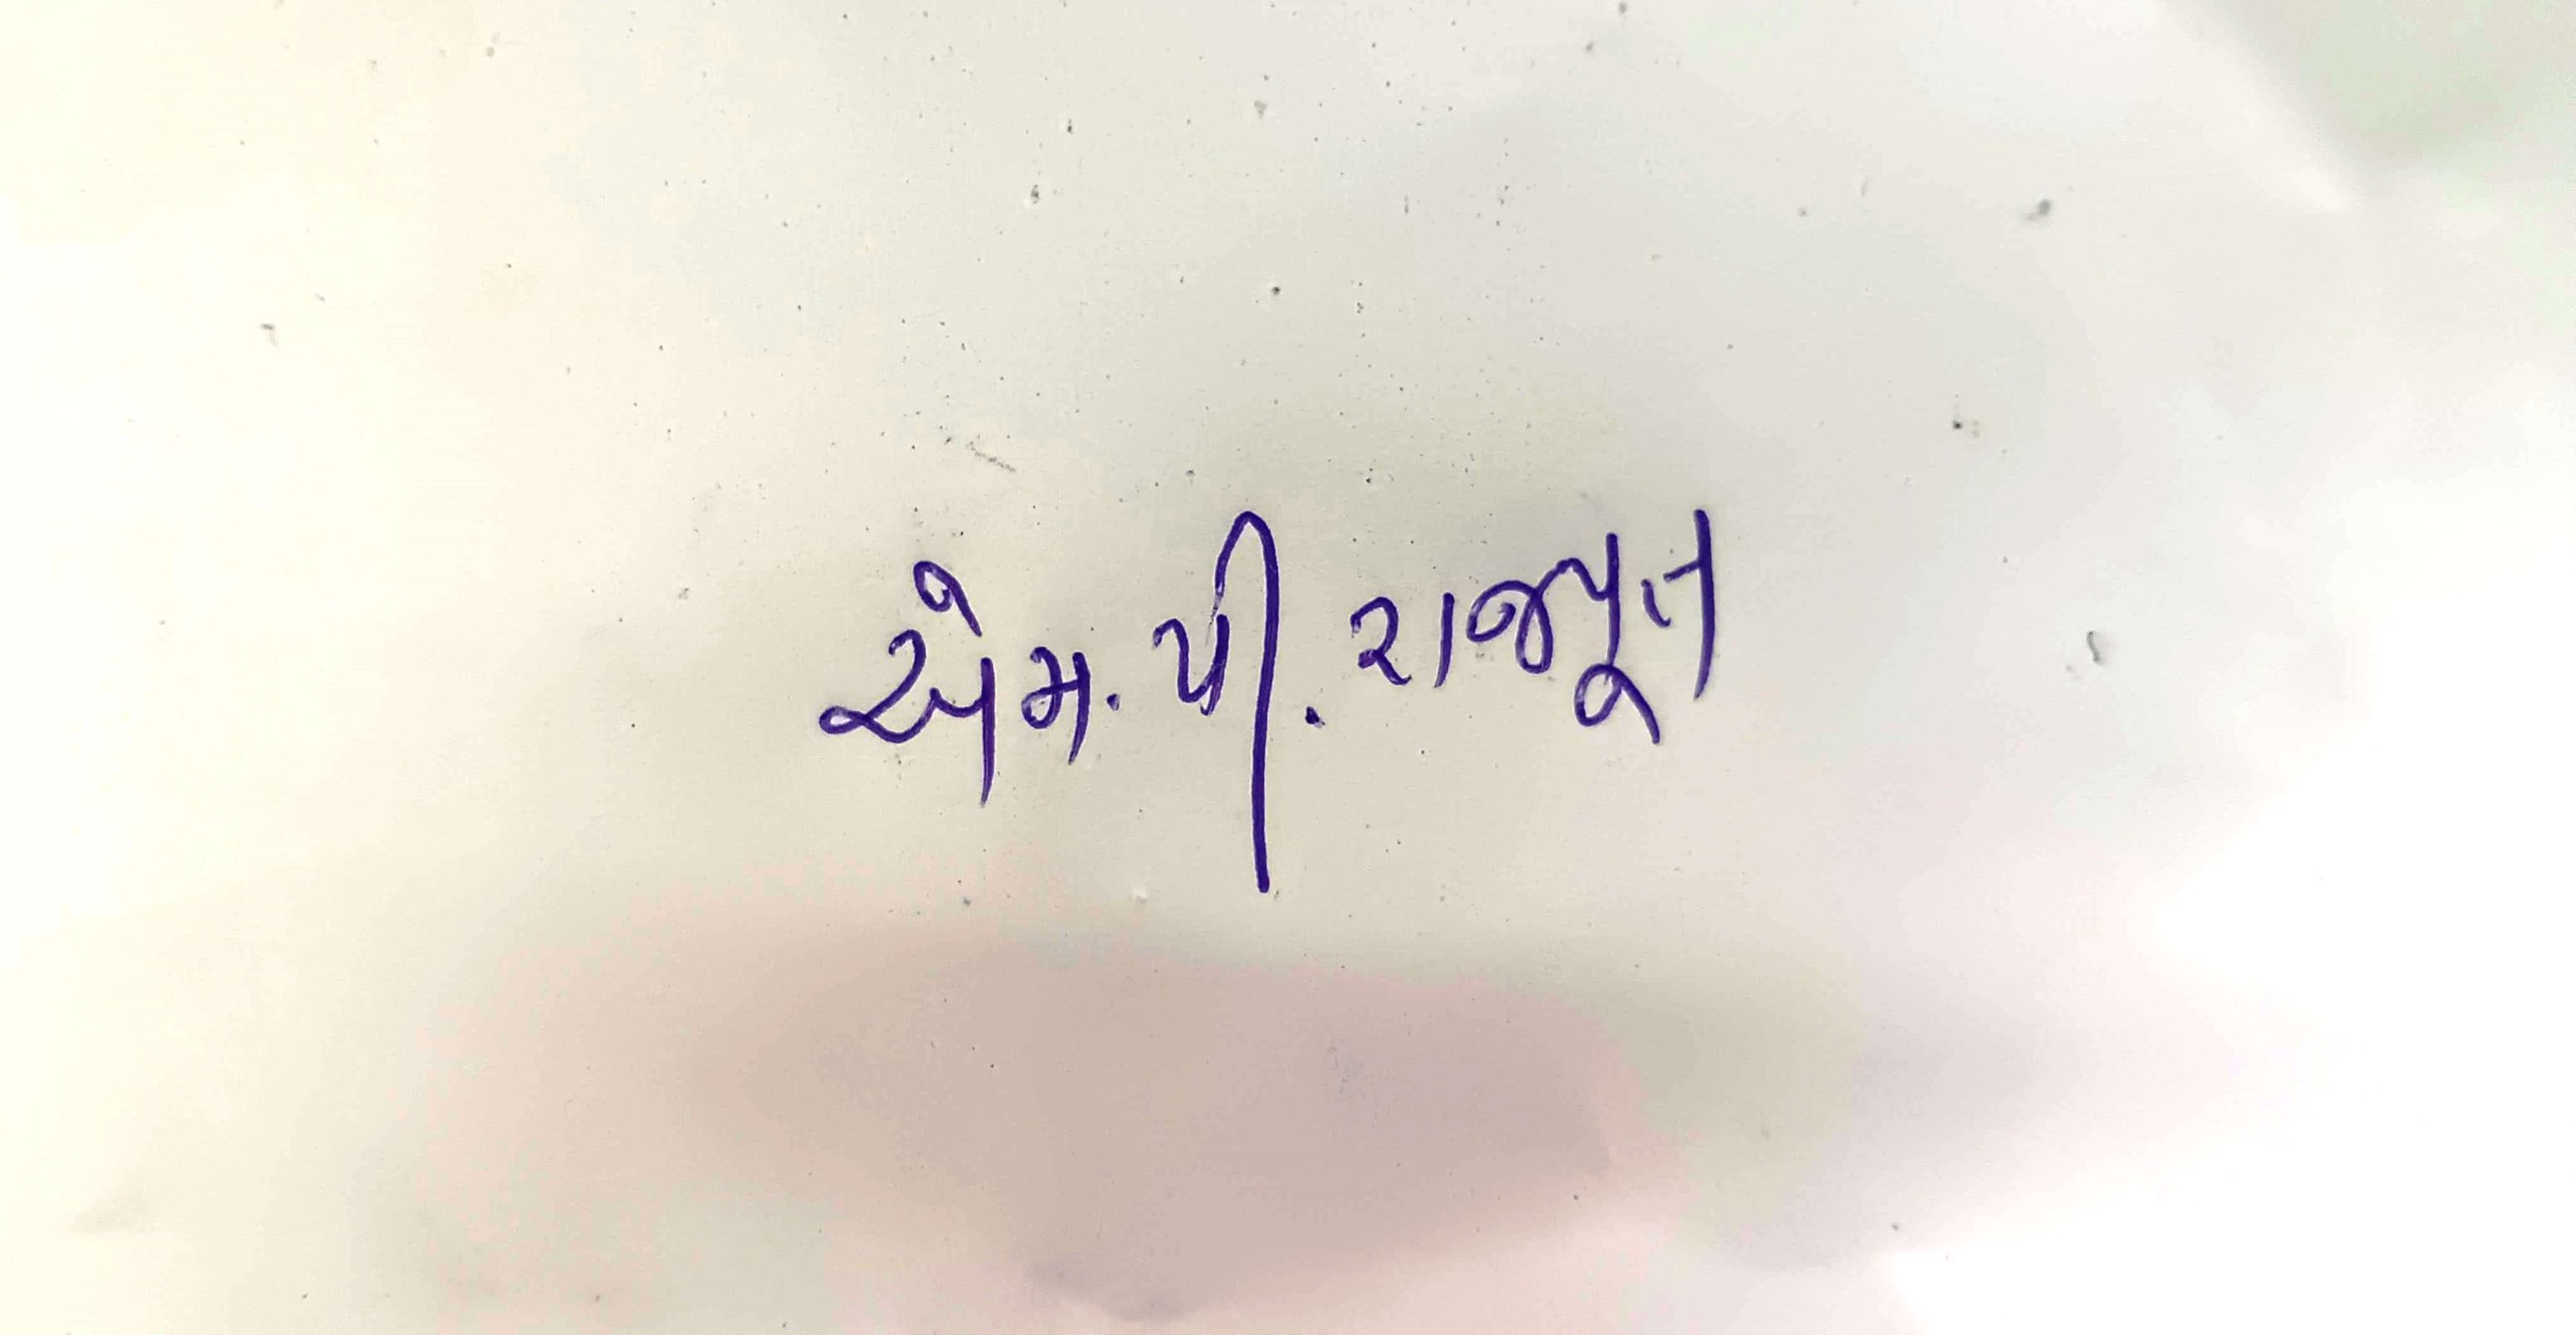 એમ. પી. રાજપૂત